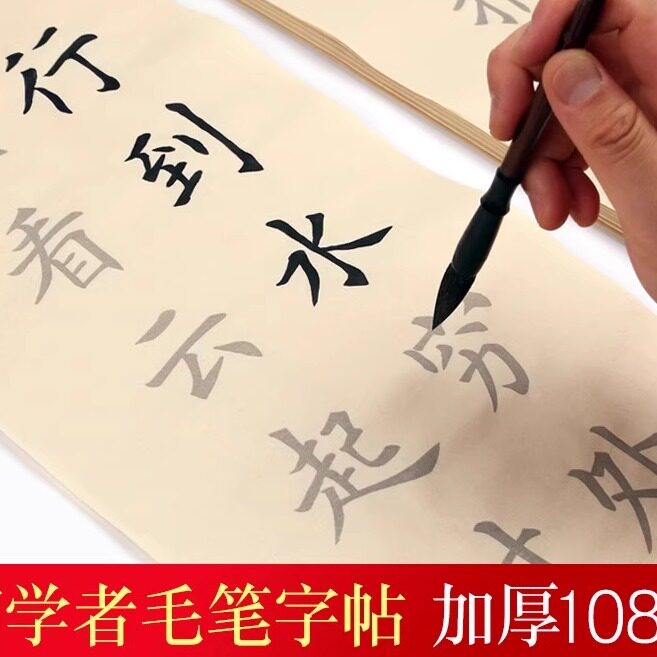 行到水穷处
看云起
学者毛笔字帖 加厚108